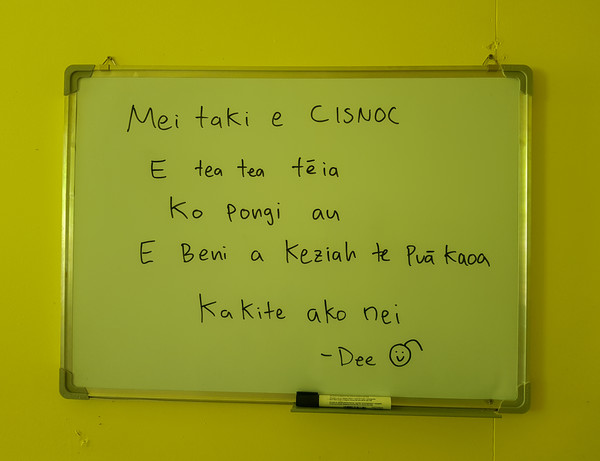 Mei taki e CISNOC
E tea tea tēia
Ko Pongi au
E Beni a Keziah te Puā kaoa
Ka kite ako nei
- Dee